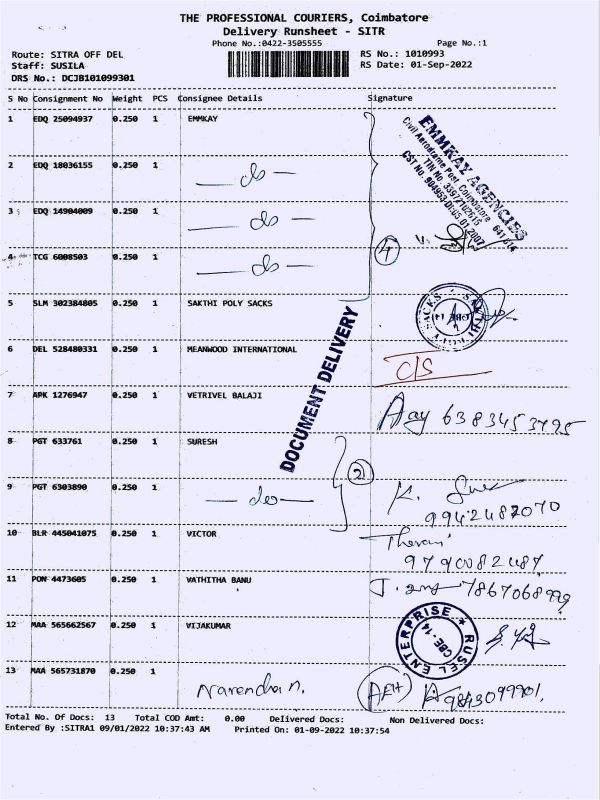 THE PROFESSIONAL COURIERS, Coimbatore
Delivery Runsheet - SITR
Phone No.:0422-3505555 Page No.:1
Route: SITRA OFF DEL RS No.: 1010993
Staff: SUSILA RS Date: 01-Sep-2022
DRS No.: DCJB101099301
S No Consignment No Weight PCS Consignee Details Signature
1 EDQ 25094937 0.250 1 EMMKAY
EMMKAY AGENCIES
Civil Aerodrome Post, Coimbatore 641 014
TIN No. 33972102615
CST No. 904953 Dt:05.01.2007
2 EDQ 18036155 0.250 1 — do —
3 EDQ 14904009 0.250 1 — do —
4 TCG 6008503 0.250 1 — do — 4
5 SLM 302384805 0.250 1 SAKTHI POLY SACKS
SAKTHI POLY SACKS CBE-14
DOCUMENT DELIVERY
6 DEL 528480331 0.250 1 MEANWOOD INTERNATIONAL C/S
7 APK 1276947 0.250 1 VETRIVEL BALAJI 6383453795
8 PGT 633761 0.250 1 SURESH 2
9 PGT 6303890 0.250 1 — do — K.
9942487070
10 BLR 445041075 0.250 1 VICTOR
9790082487
11 PON 4473605 0.250 1 VATHITHA BANU 7867068999
12 MAA 565662567 0.250 1 VIJAKUMAR
RUSEL ENTERPRISE CBE-14
13 MAA 565731870 0.250 1 Narendra n. 9843099901
Total No. Of Docs: 13 Total COD Amt: 0.00 Delivered Docs: Non Delivered Docs:
Entered By :SITRA1 09/01/2022 10:37:43 AM Printed On: 01-09-2022 10:37:54